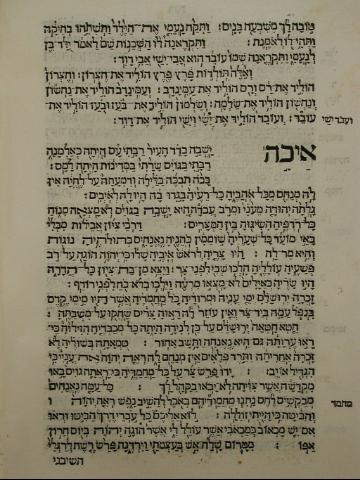 טובה לך משבעה בנים: ותקח נעמי את הילד ותשתהו בחיקה
ותהי לו לאמנת: ותקראנה לו השכנות שם לאמר ילד בן
לנעמי ותקראנה שמו עובד הוא אבי ישי אבי דוד:
ואלה תולדות פרץ פרץ הוליד את חצרון: וחצרון
הוליד את רם ורם הוליד את עמינדב: ועמינדב הוליד את נחשון
ונחשון הוליד את שלמה: ושלמון הוליד את בעז ובעז הוליד את
עובד: ועובד הוליד את ישי וישי הוליד את דוד:
ועבד ישי
איכה ישבה בדד העיר רבתי עם היתה כאלמנה
רבתי בגוים שרתי במדינות היתה למס:
בכה תבכה בלילה ודמעתה על לחיה אין
לה מנחם מכל אהביה כל רעיה בגדו בה היו לה לאיבים:
גלתה יהודה מעני ומרב עבדה היא ישבה בגוים לא מצאה מנוח
כל רדפיה השיגוה בין המצרים: דרכי ציון אבילות מבלי
באי מועד כל שעריה שוממין כהניה נאנחים בתולתיה נוגות
והיא מר לה: היו צריה לראש איביה שלו כי יהוה הוגה על רב
פשעיה עולליה הלכו שבי לפני צר: ויצא מן בת ציון כל הדרה
היו שריה כאילים לא מצאו מרעה וילכו בלא כח לפני רודף:
זכרה ירושלם ימי עניה ומרודיה כל מחמדיה אשר היו מימי קדם
בנפל עמה ביד צר ואין עוזר לה ראוה צרים שחקו על משבתה:
חטא חטאה ירושלם על כן לנידה היתה כל מכבדיה הזילוה כי
ראו ערותה גם היא נאנחה ותשב אחור: טמאתה בשוליה לא
זכרה אחריתה ותרד פלאים אין מנחם לה ראה יהוה את עניי כי
הגדיל אויב: ידו פרש צר על כל מחמדיה כי ראתה גוים באו
מקדשה אשר צויתה לא יבאו בקהל לך: כל עמה נאנחים
מבקשים לחם נתנו מחמודיהם באכל להשיב נפש ראה יהוה
והביטה כי הייתי זוללה: לוא אליכם כל עברי דרך הביטו וראו
אם יש מכאוב כמכאבי אשר עולל לי אשר הוגה יהוה ביום חרון
אפו: ממרום שלח אש בעצמתי וירדנה פרש רשת לרגלי
השיבני